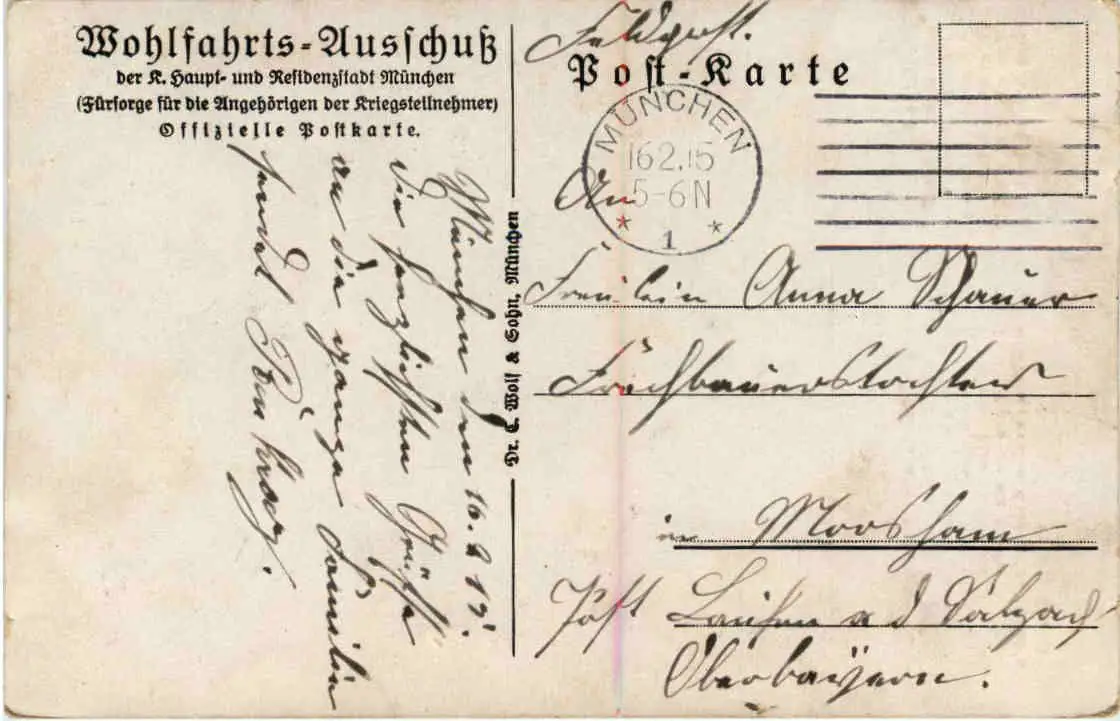 Wohlfahrts-Ausschuß
der K. Haupt- und Residenzstadt München
(Fürsorge für die Angehörigen der Kriegsteilnehmer)
Offizielle Postkarte.
München den 16. 2 15.
die herzlichsten Grüße
an die ganze Familie
sendet
Dr. C. Wolf & Sohn, München
Feldpost.
Post-Karte
MÜNCHEN
16.2.15
5-6 N
* 1 *
An
Freulein Anna Schauer
in Moosham
Post Laufen a d Salzach
Oberbayern.